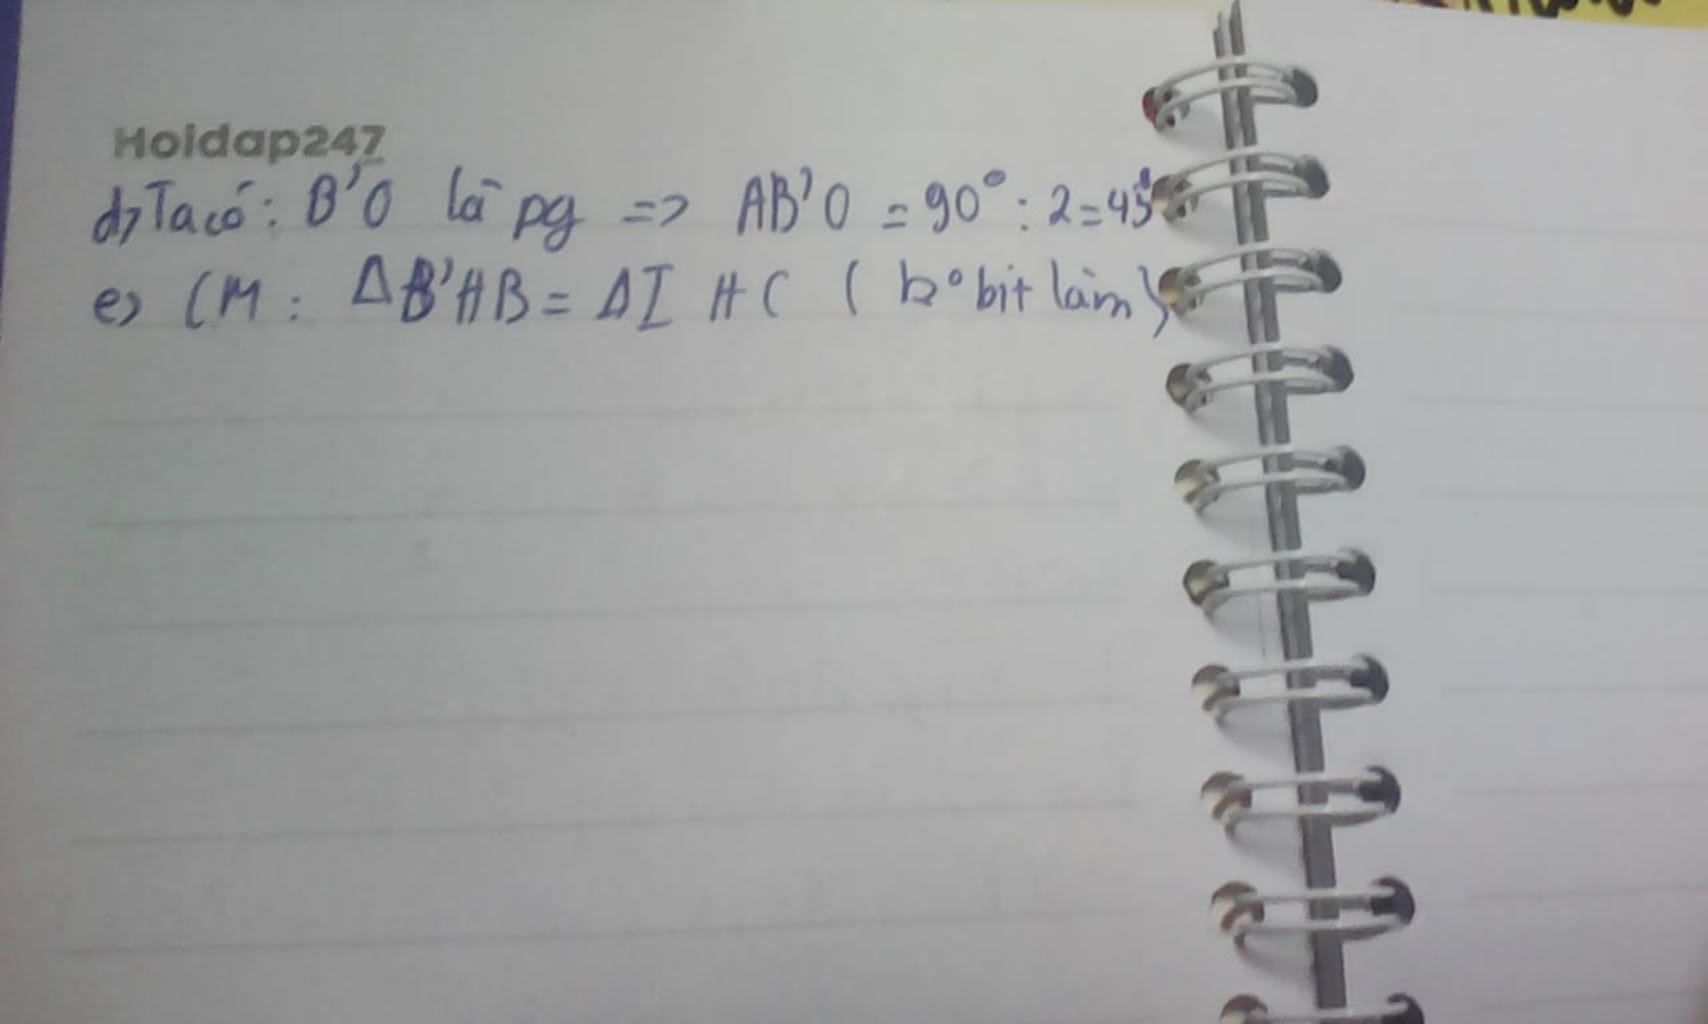 Hoidap247
d, Ta có: B'O là pg => AB'O = 90° : 2 = 45°
e, CM: ΔB'HB = ΔIHC ( k° bit làm )